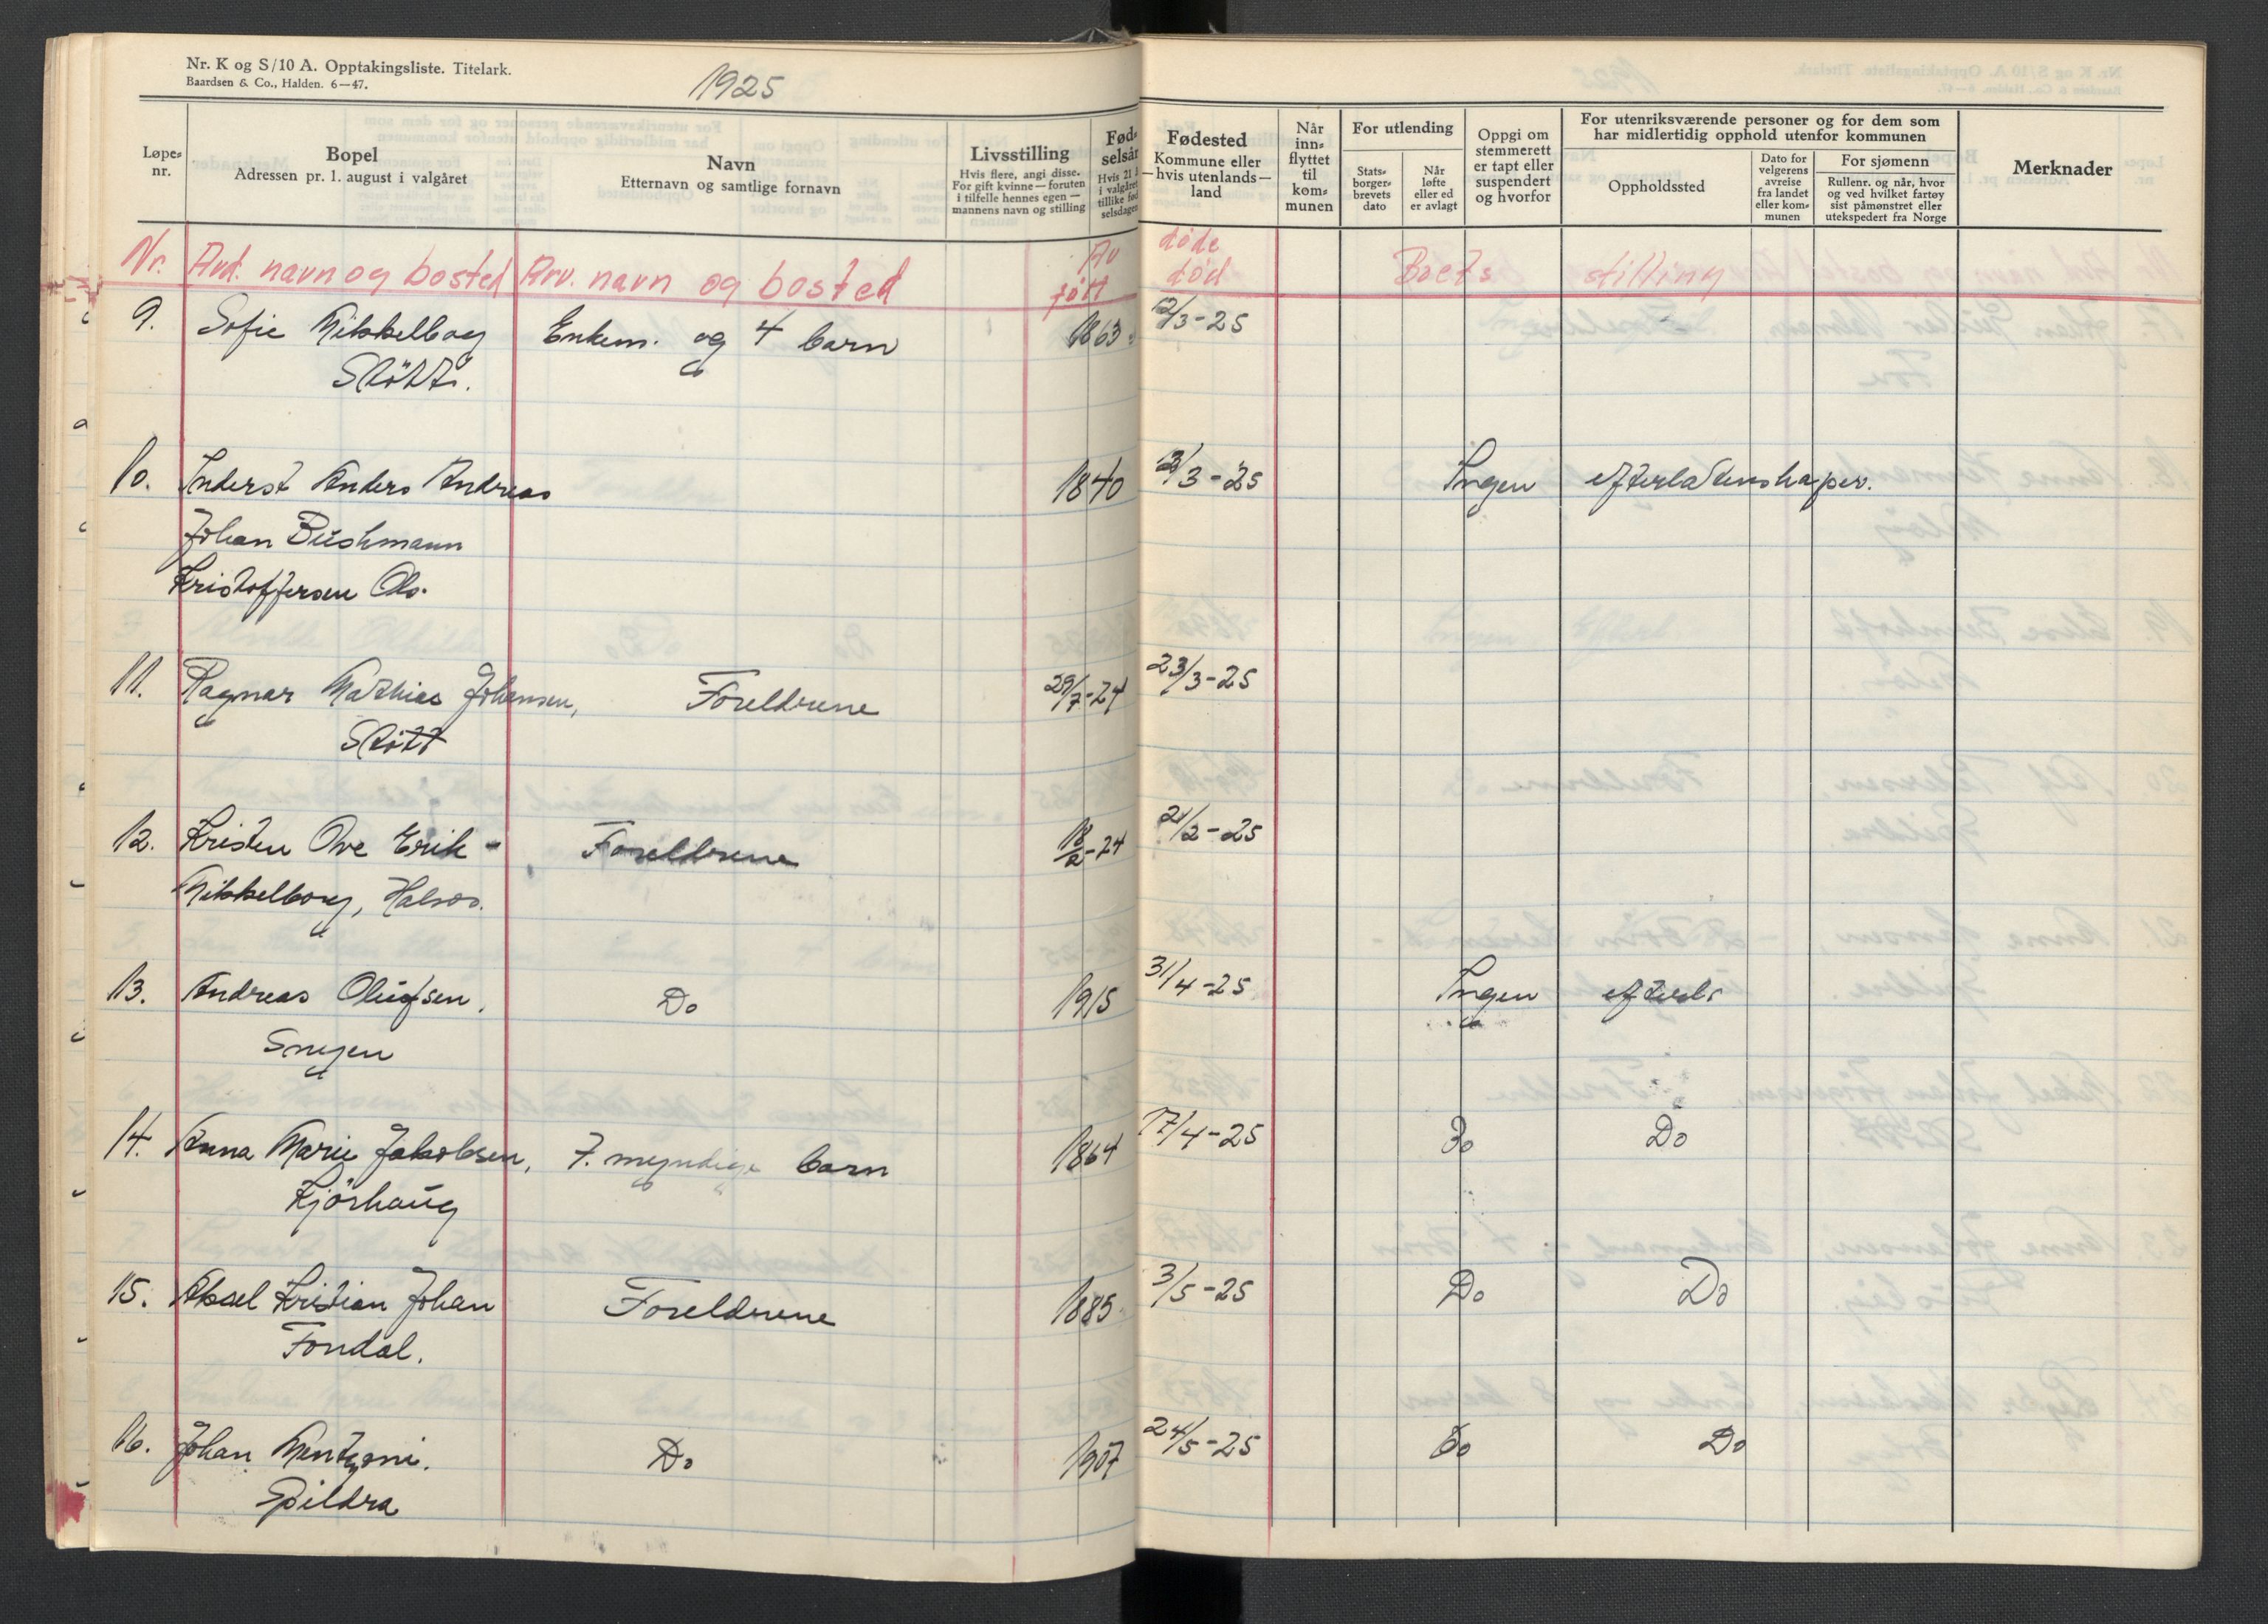 Nr. K og S/10 A. Opptakingsliste. Titelark.
Baardsen & Co., Halden. 6—47.
1925
Løpe-
nr.
Bopel
Adressen pr. 1. august i valgåret
Navn
Etternavn og samtlige fornavn
Livsstilling
Hvis flere, angi disse.
For gift kvinne — foruten
i tilfelle hennes egen —
mannens navn og stilling
Fød-
selsår
Hvis 21 å
i valgåret
tillike fød
selsdagen
Fødested
Kommune eller
—hvis utenlands—
land
Når
inn-
flyttet
til
kom-
munen
For utlending
Stats-
borger-
brevets
dato
Når
løfte
eller ed
er avlagt
Oppgi om
stemmerett
er tapt eller
suspendert
og hvorfor
For utenriksværende personer og for dem som
har midlertidig opphold utenfor kommunen
Oppholdssted
Dato for
velgerens
avreise
fra landet
eller kom-
munen
For sjømenn
Rullenr. og når, hvor
og ved hvilket fartøy
sist påmønstret eller
utekspedert fra Norge
Merknader
Nr. Avd. navn og bosted Arv. navn og bosted Av døde
født død Boets stilling
9. Sofie Mikkelborg Enkem. og 4 barn 1863 12/3-25
Støtt.
10. Inderst Anders Andreas 1840 /3-25 Ingen efterladenskaper.
Johan Buschmann
Kristoffersen Øls.
11. Ragnar Mathias Johansen, Foreldrene 29/7-24 23/3-25
Støtt
12. Kristen Ove Erik- Foreldrene 18/2-24 21/2-25
Mikkelborg, Halsos.
13. Andreas Olufsen, Do 1915 31/4-25 Ingen efterl.
Sneyen
14. Anna Marie Jakobsen, 7. myndige barn 1864 17/4-25 Do Do
Kjørhaug
15. Aksel Kristian Johan Foreldrene 1885 3/5-25 Do Do
Fondal.
16. Johan Mentzoni. Do 1907 24/5-25 Do Do
Spildra